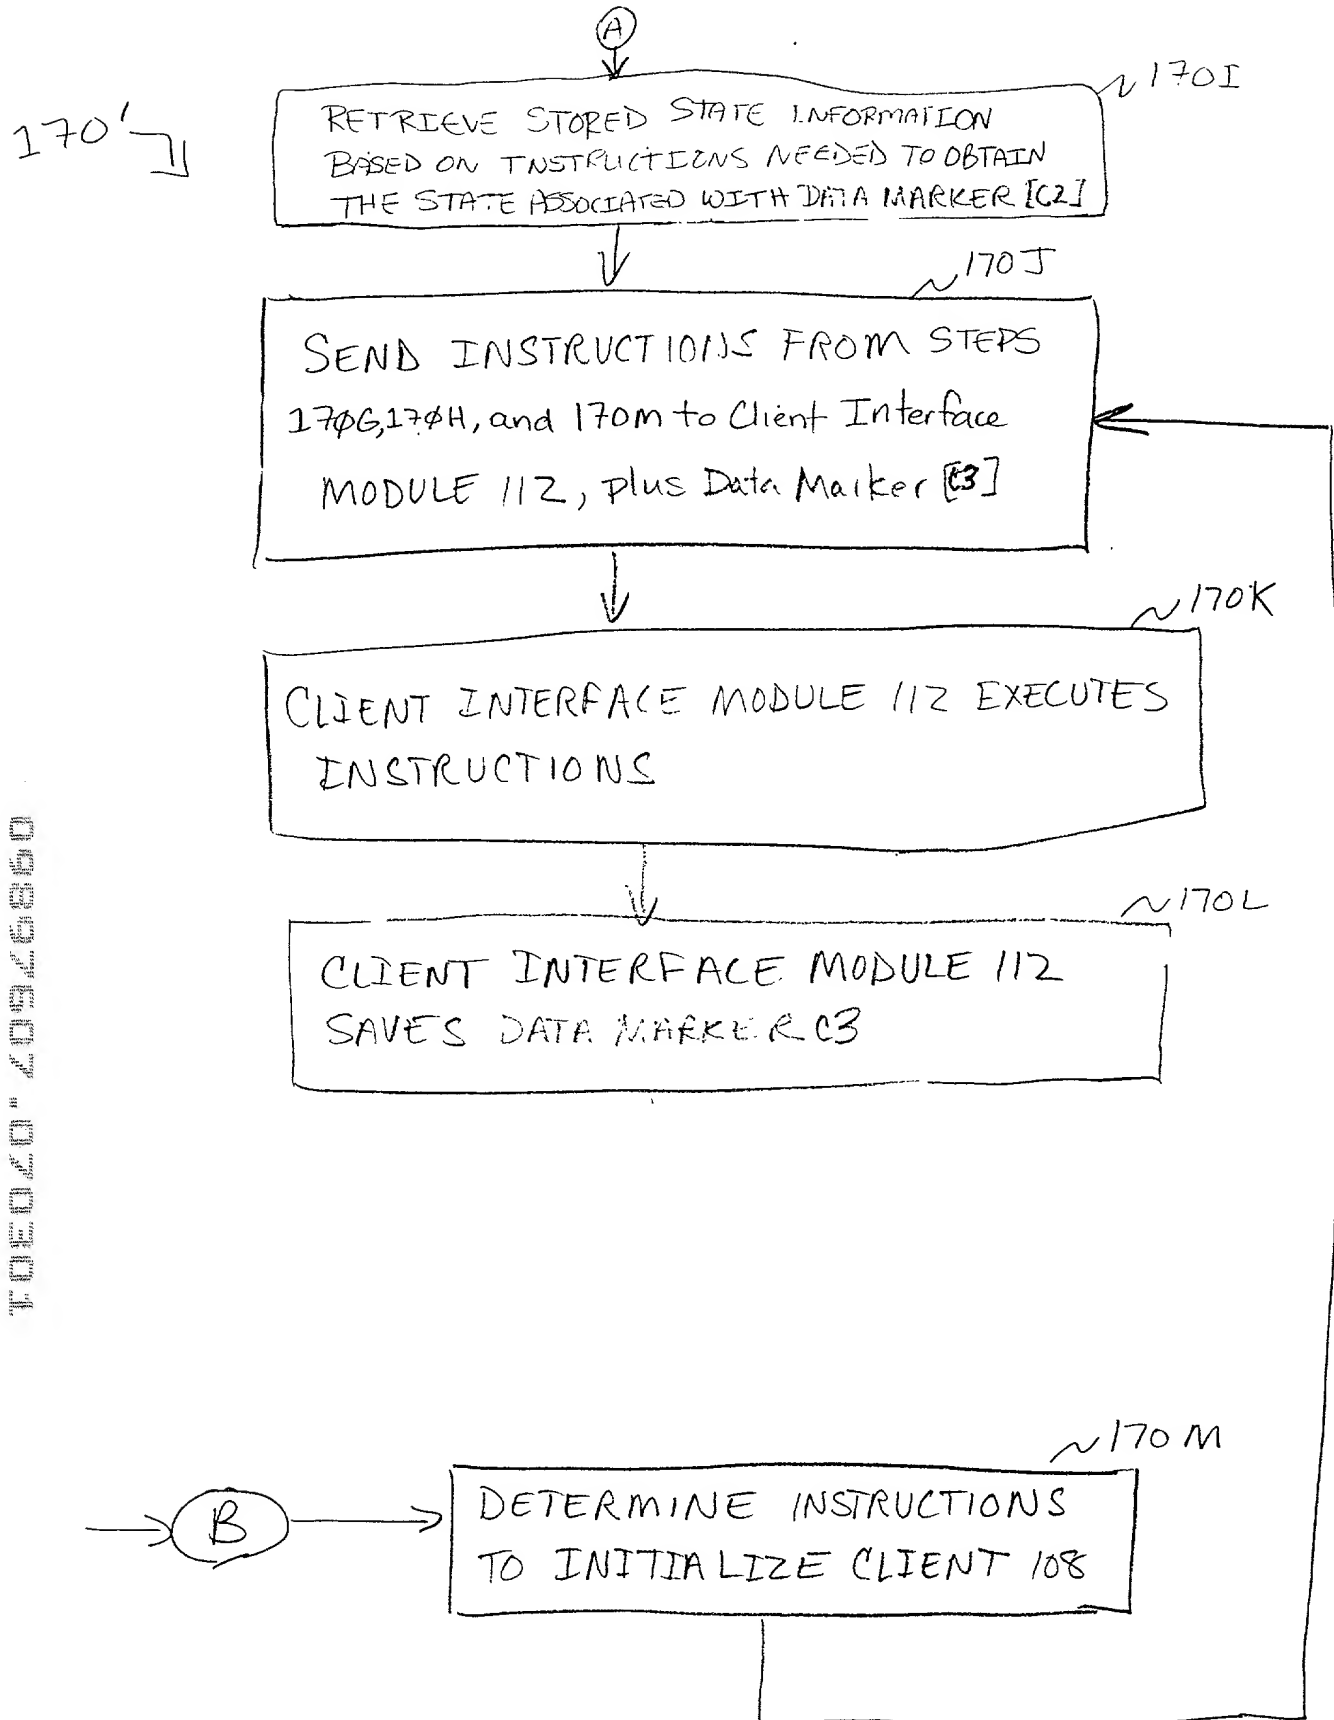 A
170'
170I
RETRIEVE STORED STATE INFORMATION
BASED ON INSTRUCTIONS NEEDED TO OBTAIN
THE STATE ASSOCIATED WITH DATA MARKER [C2]
170J
SEND INSTRUCTIONS FROM STEPS
170G, 170H, and 170M to Client Interface
MODULE 112, plus Data Marker [C3]
170K
CLIENT INTERFACE MODULE 112 EXECUTES
INSTRUCTIONS
170L
CLIENT INTERFACE MODULE 112
SAVES DATA MARKER C3
09897607.070301
170M
B
DETERMINE INSTRUCTIONS
TO INITIALIZE CLIENT 108